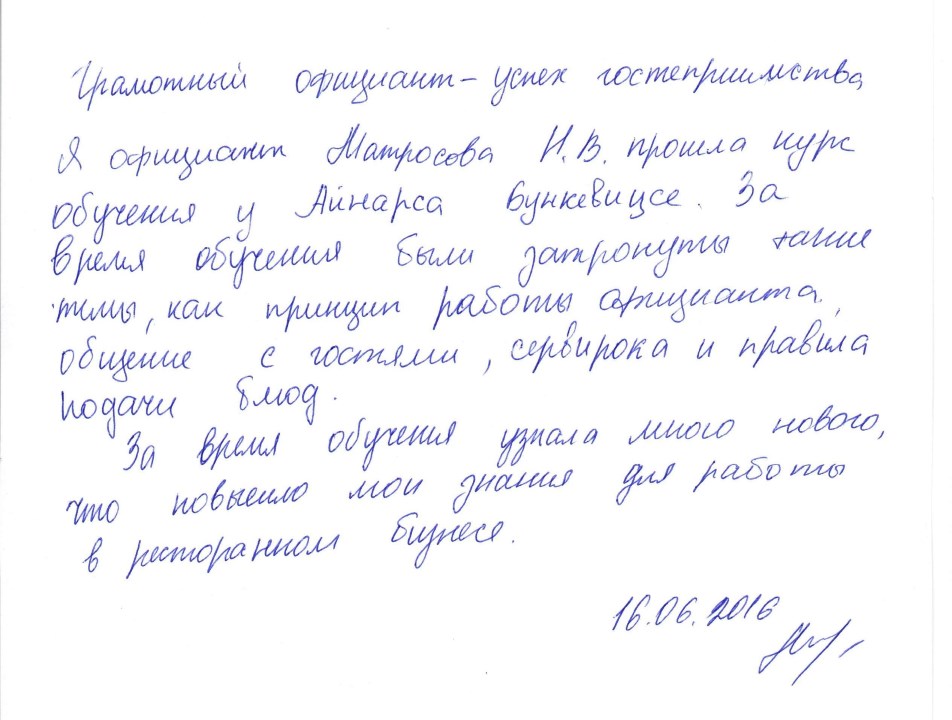 Грамотный официант – успех гостеприимства
Я официант Матросова Н.В. прошла курс
обучения у Айнарса Бункевицсе. За
время обучения были затронуты такие
темы, как принцип работы официанта,
общение с гостями, сервирока и правила
подачи блюд.
За время обучения узнала много нового,
что повысило мои знания для работы
в ресторанном бизнесе.
16.06.2016